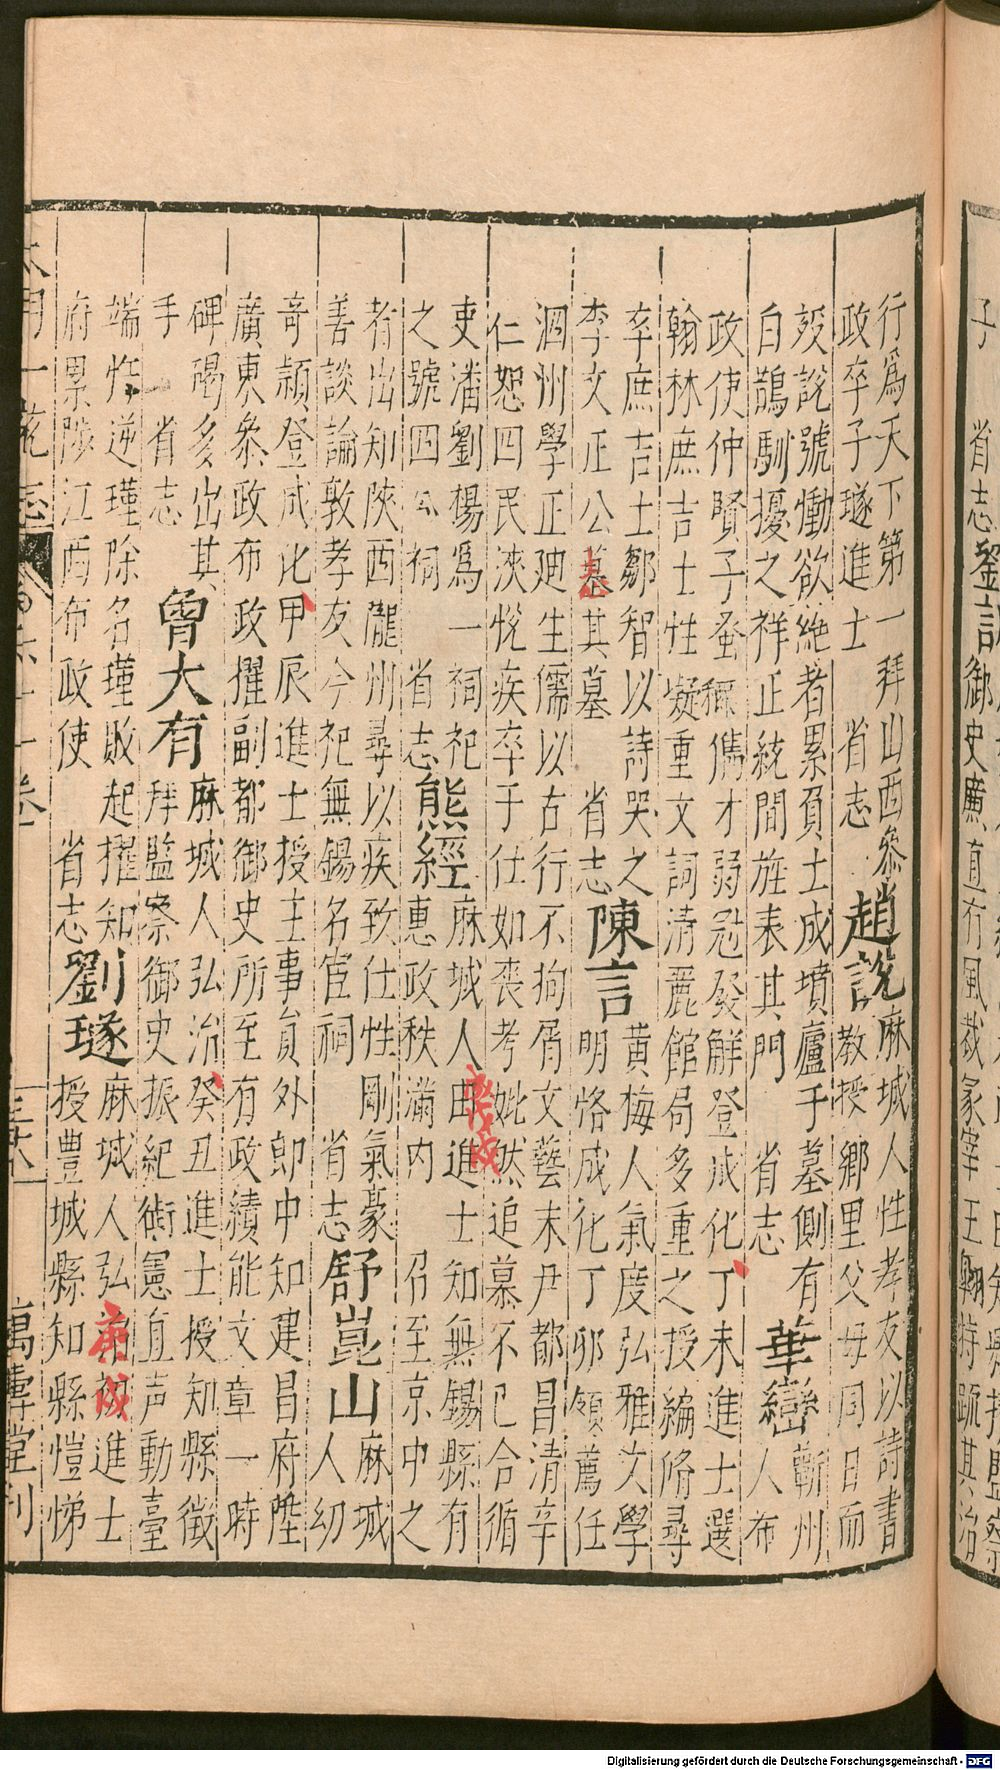 行爲天下第一拜山西參
政卒子璲進士　省志
趙說
麻城人性孝友以詩書
教授鄉里父母同日而
歿說號慟欲絶者累負土成墳廬手墓側有
白鵲馴擾之祥正統間旌表其門　省志
華巒
蘄州
人布
政使仲賢子蚤穪儁才弱冠發解登成化丁未進士選
翰林庶吉士性凝重文詞清麗館局多重之授編脩尋
卒庶吉士鄒智以詩哭之
李文正公墓其墓　省志
陳言
黃梅人氣度弘雅文學
明恪成化丁卯領薦任
泗州學正廸生儒以古行不拘屑文藝末尹都昌清辛
仁恕四民浹悅疾卒于仕如喪考妣然追慕不已合循
吏潘劉楊爲一祠祀
之號四公祠　省志
熊經
麻城人由進士知無錫縣有
惠政秩滿內　召至京中之
者出知陝西隴州尋以疾致仕性剛氣豪
善談論敦孝友今祀無錫名宦祠　省志
舒崑山
麻城
人幼
奇穎登成化甲辰進士授主事員外郎中知建昌府陞
廣東叅政布政擢副都御史所至有政績能文章一時
碑碣多出其
手　省志
曾大有
麻城人弘治癸丑進士授知縣徵
拜監察御史振紀衛憲直声動臺
端忤逆瑾除名瑾敗起擢知
府累陟江西布政使　省志
劉璲
麻城人弘治初進士
授豊城縣知縣愷悌
戊戌
庚戌
萬卷堂刋
子　省志
劉訒
御史廉直有風裁冢宰王翺特䟽其治
Digitalisierung gefördert durch die Deutsche Forschungsgemeinschaft - DFG